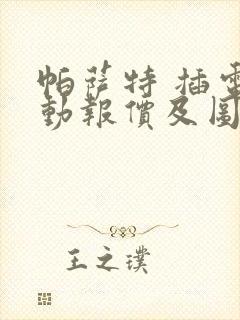 帕萨特 插電
動報價及圖
王之璞